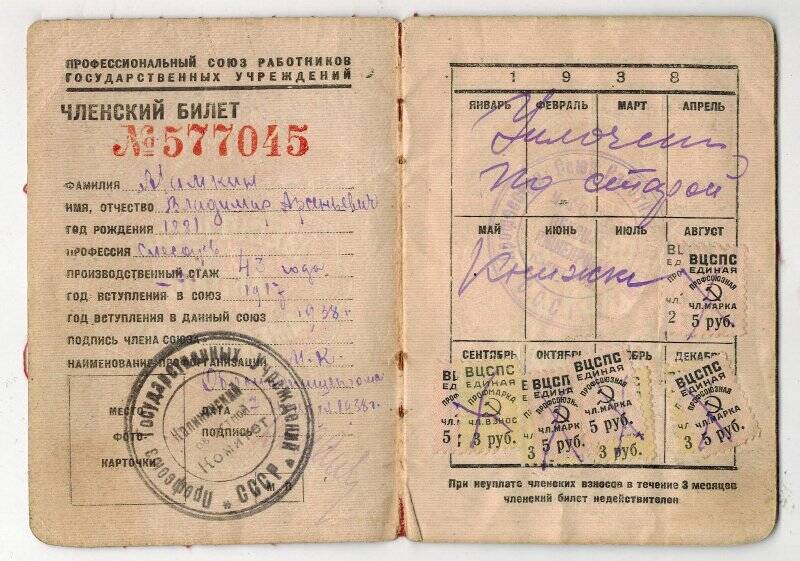 ПРОФЕССИОНАЛЬНЫЙ СОЮЗ РАБОТНИКОВ
ГОСУДАРСТВЕННЫХ УЧРЕЖДЕНИЙ
ЧЛЕНСКИЙ БИЛЕТ
№577045
ФАМИЛИЯ
ИМЯ, ОТЧЕСТВО Владимир Арсеньевич
ГОД РОЖДЕНИЯ 1881
ПРОФЕССИЯ Слесарь
ПРОИЗВОДСТВЕННЫЙ СТАЖ 43 года
ГОД ВСТУПЛЕНИЯ В СОЮЗ 1917
ГОД ВСТУПЛЕНИЯ В ДАННЫЙ СОЮЗ 1938 г.
ПОДПИСЬ ЧЛЕНА СОЮЗА
НАИМЕНОВАНИЕ ПРОФОРГАНИЗАЦИИ М.К.
МЕСТО
ФОТО
КАРТОЧКИ
ДАТА 1938 г.
ПОДПИСЬ
М П
Профсоюз Государственных Учреждений
СССР
Калининский
Комитет
1938
ЯНВАРЬ ФЕВРАЛЬ МАРТ АПРЕЛЬ
Уплочены
по старой
МАЙ ИЮНЬ ИЮЛЬ АВГУСТ
книжке
ВЦСПС
ЕДИНАЯ
ПРОФСОЮЗНАЯ
ЧЛ. МАРКА
5 руб.
СЕНТЯБРЬ ОКТЯБРЬ БРЬ ДЕКАБРЬ
ВЦСПС
ЕДИНАЯ
ПРОФМАРКА
ЧЛ. ВЗНОС
3 руб.
ВЦСПС
ЕДИНАЯ
ПРОФСОЮЗНАЯ
ЧЛ. МАРК
5 руб.
ВЦСПС
ЕДИНАЯ
ПРОФСОЮЗНАЯ
ЧЛ. МАРКА
5 руб.
ВЦСПС
ЕДИНАЯ
ПРОФСОЮЗНАЯ
ЧЛ. МАРКА
5 руб.
При неуплате членских взносов в течение 3 месяцев
членский билет недействителен